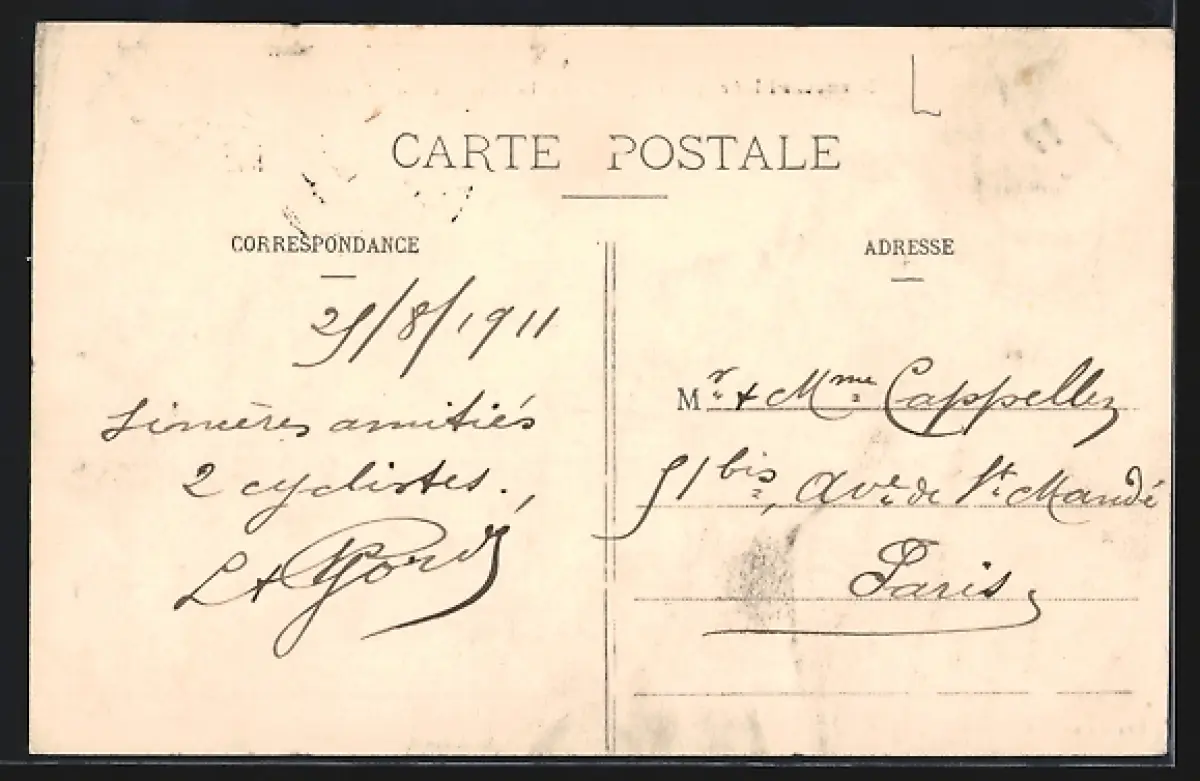 CARTE POSTALE
CORRESPONDANCE
25/8/1911
Sincères amitiés
2 cyclistes.
L +
ADRESSE
Mr. + Mme. Cappellez
51 bis, Ave. de St. Mandé
Paris